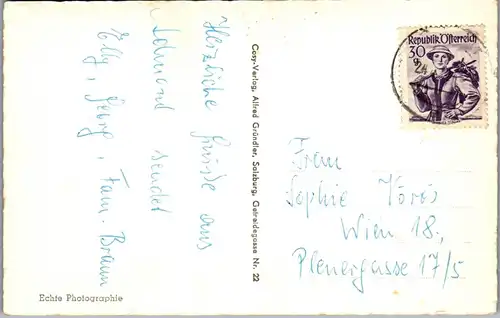 Herzliche Grüsse aus
Admont sendet
Elly, Georg, Fam. Braun
Cosy-Verlag, Alfred Gründler, Salzburg, Getreidegasse Nr. 22
Republik Österreich
30
Frau
Sophie Vörös
Wien 18.,
Plenergasse 17/5
Echte Photographie